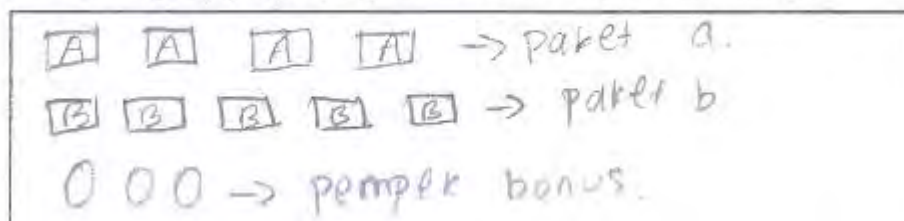 A A A A -> paket a.
B B B B B -> paket b
0 0 0 -> pempek bonus.